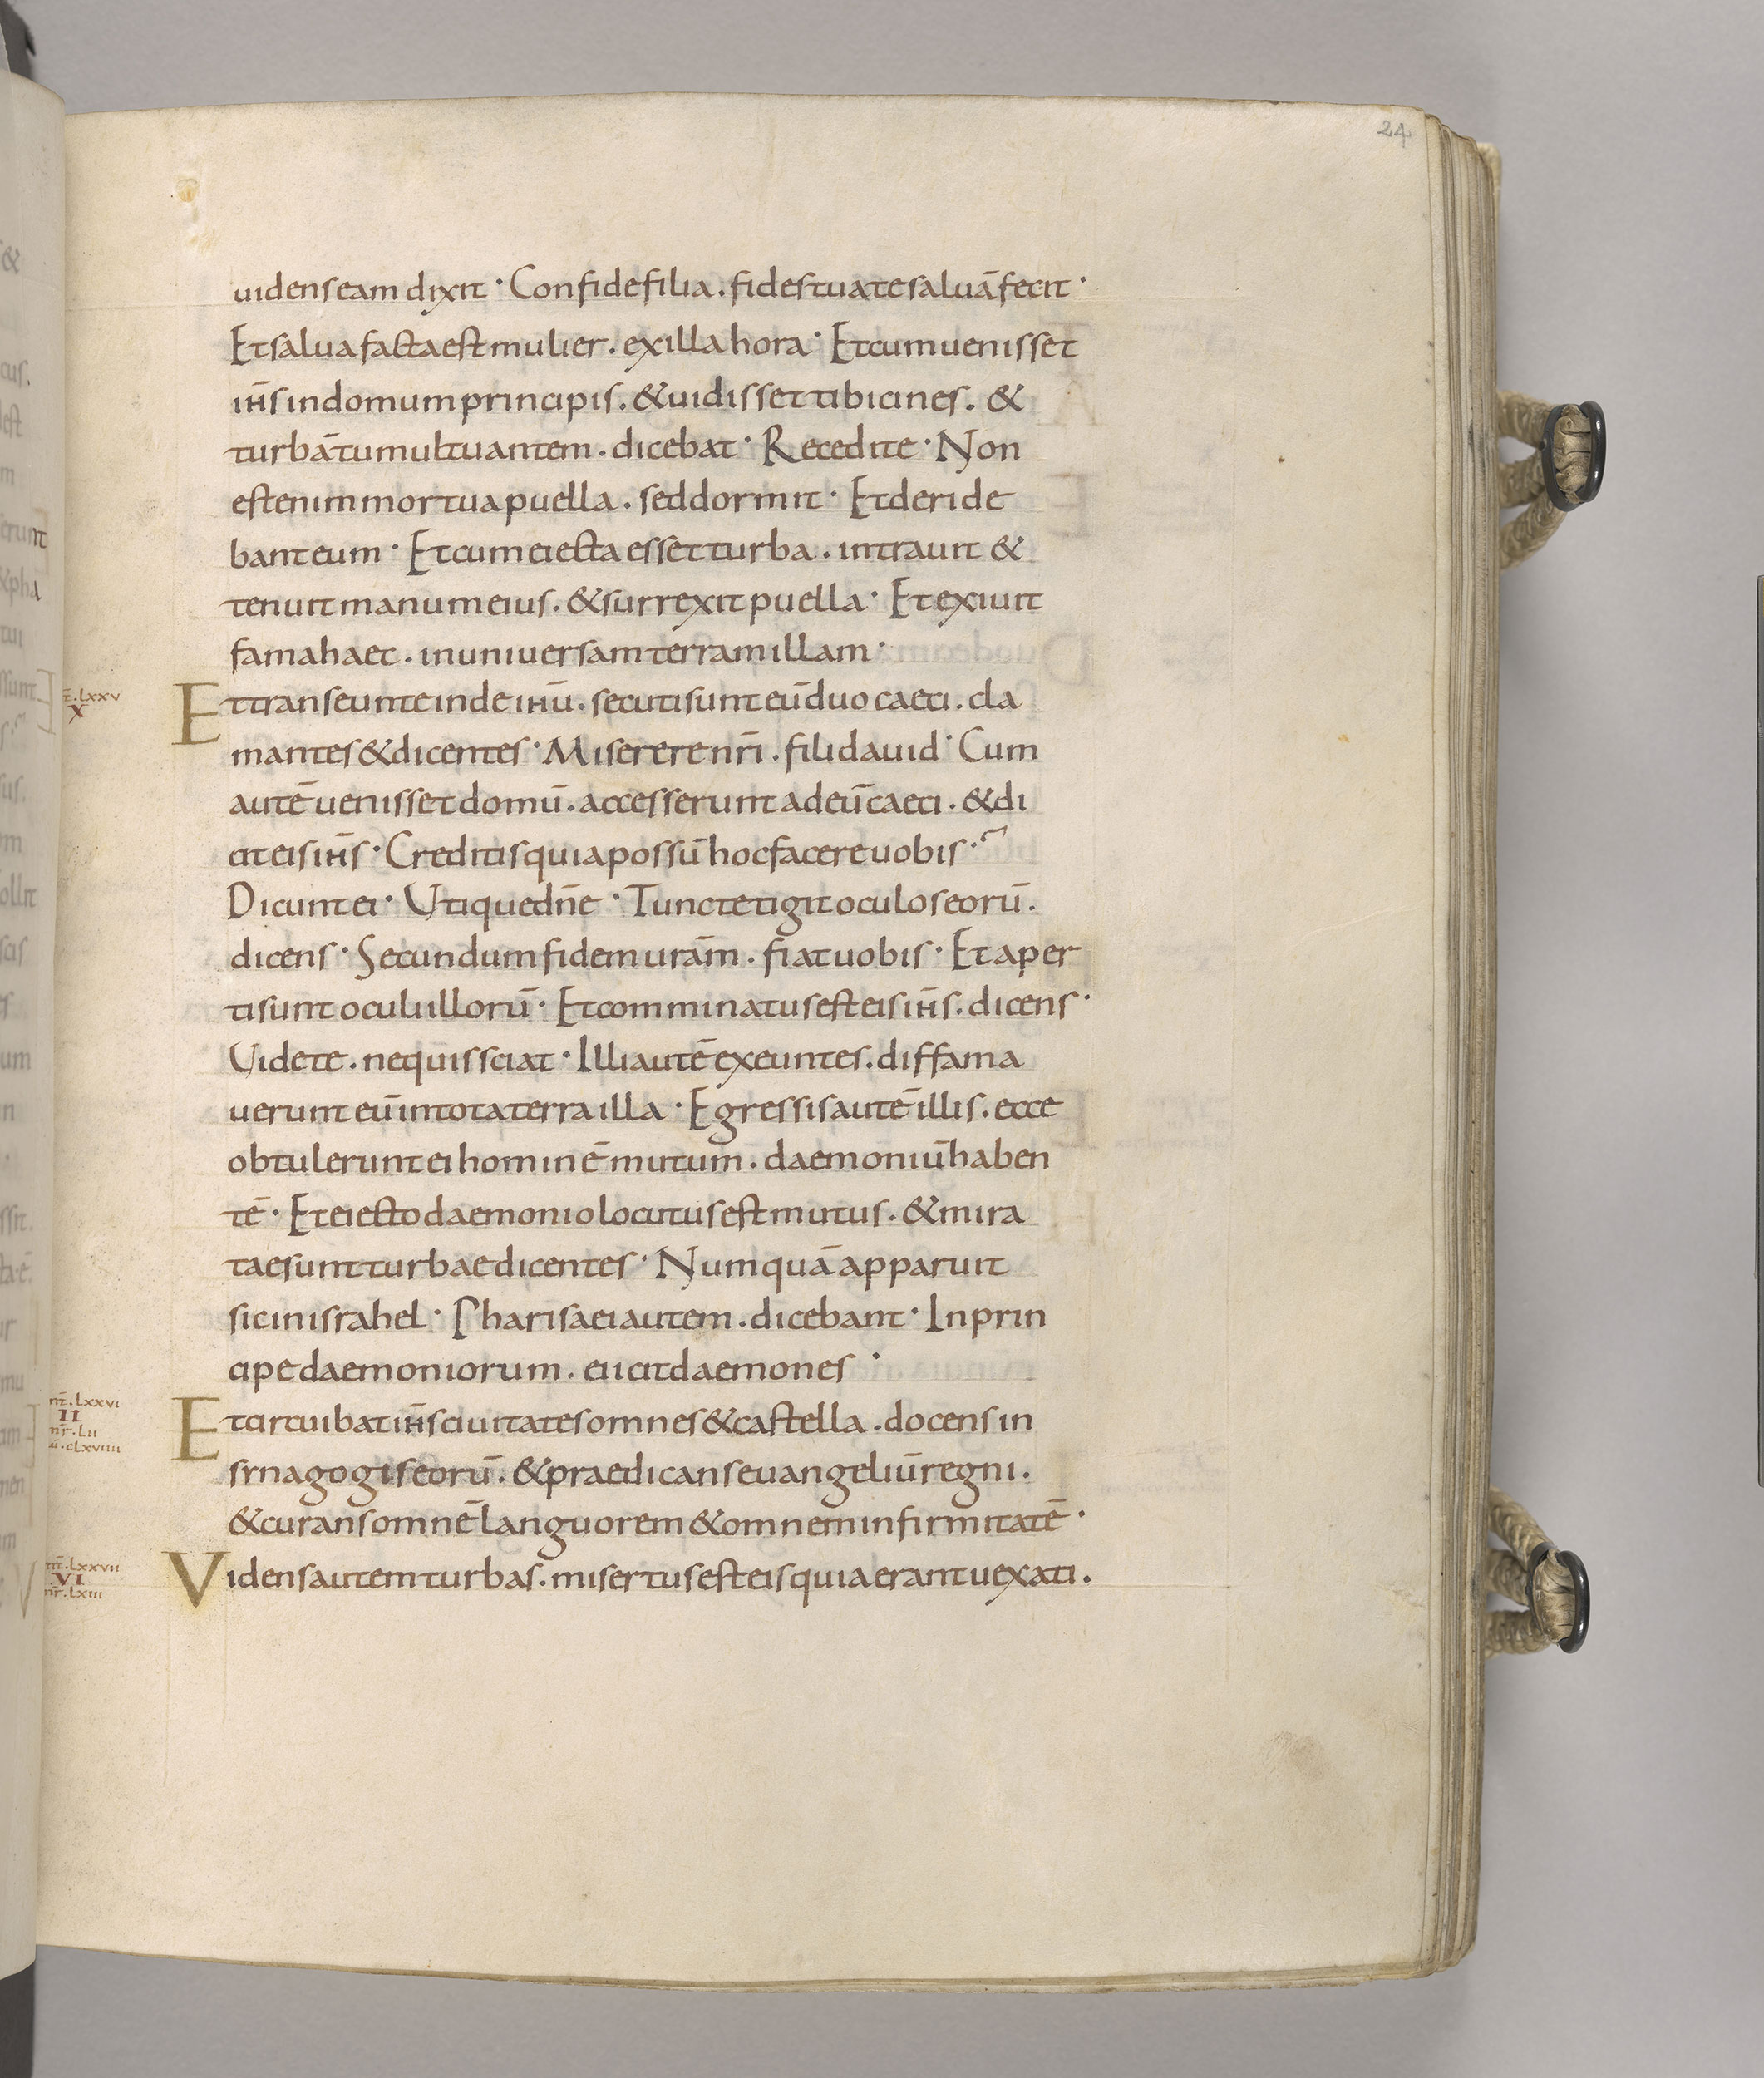 24
uidens eam dixit · Confide filia . fides tua te saluā fecit ·
Et salua facta est mulier . ex illa hora · Et cum uenisset
ih̄s in domum principis . & uidisset tibicines . &
turbā tumultuantem . dicebat · Recedite · Non
est enim mortua puella . sed dormit · Et deride
bant eum · Et cum eiecta esset turba . intrauit &
tenuit manum eius . & surrexit puella · Et exiuit
fama haec . in uniuersam terram illam ·
t̄ . lxxv
X
Et transeunte inde ihū . secuti sunt eū duo caeci . cla
mantes & dicentes · Miserere nr̄i . fili dauid · Cum
autē uenisset domū . accesserunt ad eū caeci . & di
cit eis ih̄s · Creditis quia possū hoc facere uobis ·
Dicunt ei · Utique dn̄e · Tunc tetigit oculos eorū .
dicens · Secundum fidem urām . fiat uobis · Et aper
ti sunt oculi illorū · Et comminatus est eis ih̄s . dicens ·
Uidete . nequis sciat · Illi autē exeuntes . diffama
uerunt eū in tota terra illa · Egressis autē illis . ecce
obtulerunt ei hominē mutum . daemoniū haben
tē · Et eiecto daemonio locutus est mutus . & mira
tae sunt turbae dicentes · Numquā apparuit
sic in israhel · Pharisaei autem . dicebant · In prin
cipe daemoniorum . eiicit daemones ·
mt̄ . lxxvi
II
mr̄ . lii
clxviiii
Et circuibat ih̄s ciuitates omnes & castella . docens in
synagogis eorū . & praedicans euangeliū regni .
& curans omnē languorem & omnem infirmitatē ·
mt̄ . lxxvii
VI
mr̄ . lxiii
Videns autem turbas . misertus est eis quia erant uexati .